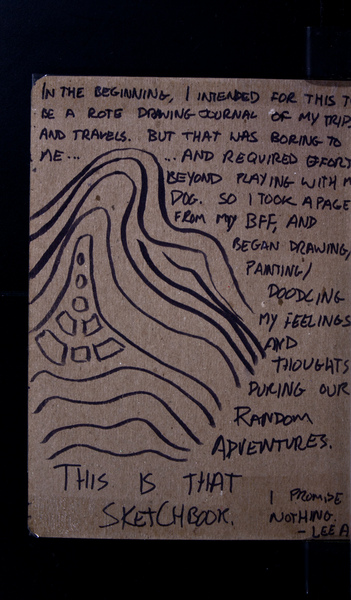 IN THE BEGINNING, I INTENDED FOR THIS T
BE A ROTE DRAWING JOURNAL OF MY TRIPS
AND TRAVELS. BUT THAT WAS BORING TO
ME... ...AND REQUIRED EFFORT
BEYOND PLAYING WITH M
DOG. SO I TOOK A PAGE
FROM MY BFF, AND
BEGAN DRAWING,
PAINTING/
DOODLING
MY FEELINGS
AND
THOUGHTS
DURING OUR
RANDOM
ADVENTURES.
THIS IS THAT
SKETCHBOOK.
I PROMISE
NOTHING.
- LEE A